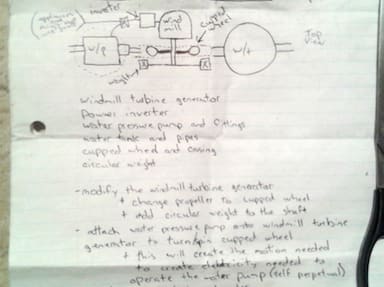 inverter
wind
mill
cupped
wheel
Top
View
w/p
w/t
weight
windmill turbine generator
power inverter
water pressure pump and fittings
water tank and pipes
cupped wheel and casing
circular weight
- modify the windmill turbine generator
+ change propeller to cupped wheel
+ add circular weight to the shaft
- attach water pressure pump onto windmill turbine
generator to turn/spin cupped wheel
+ this will create the motion needed
to create elektricity needed to
operate the water pump (self perpetual)